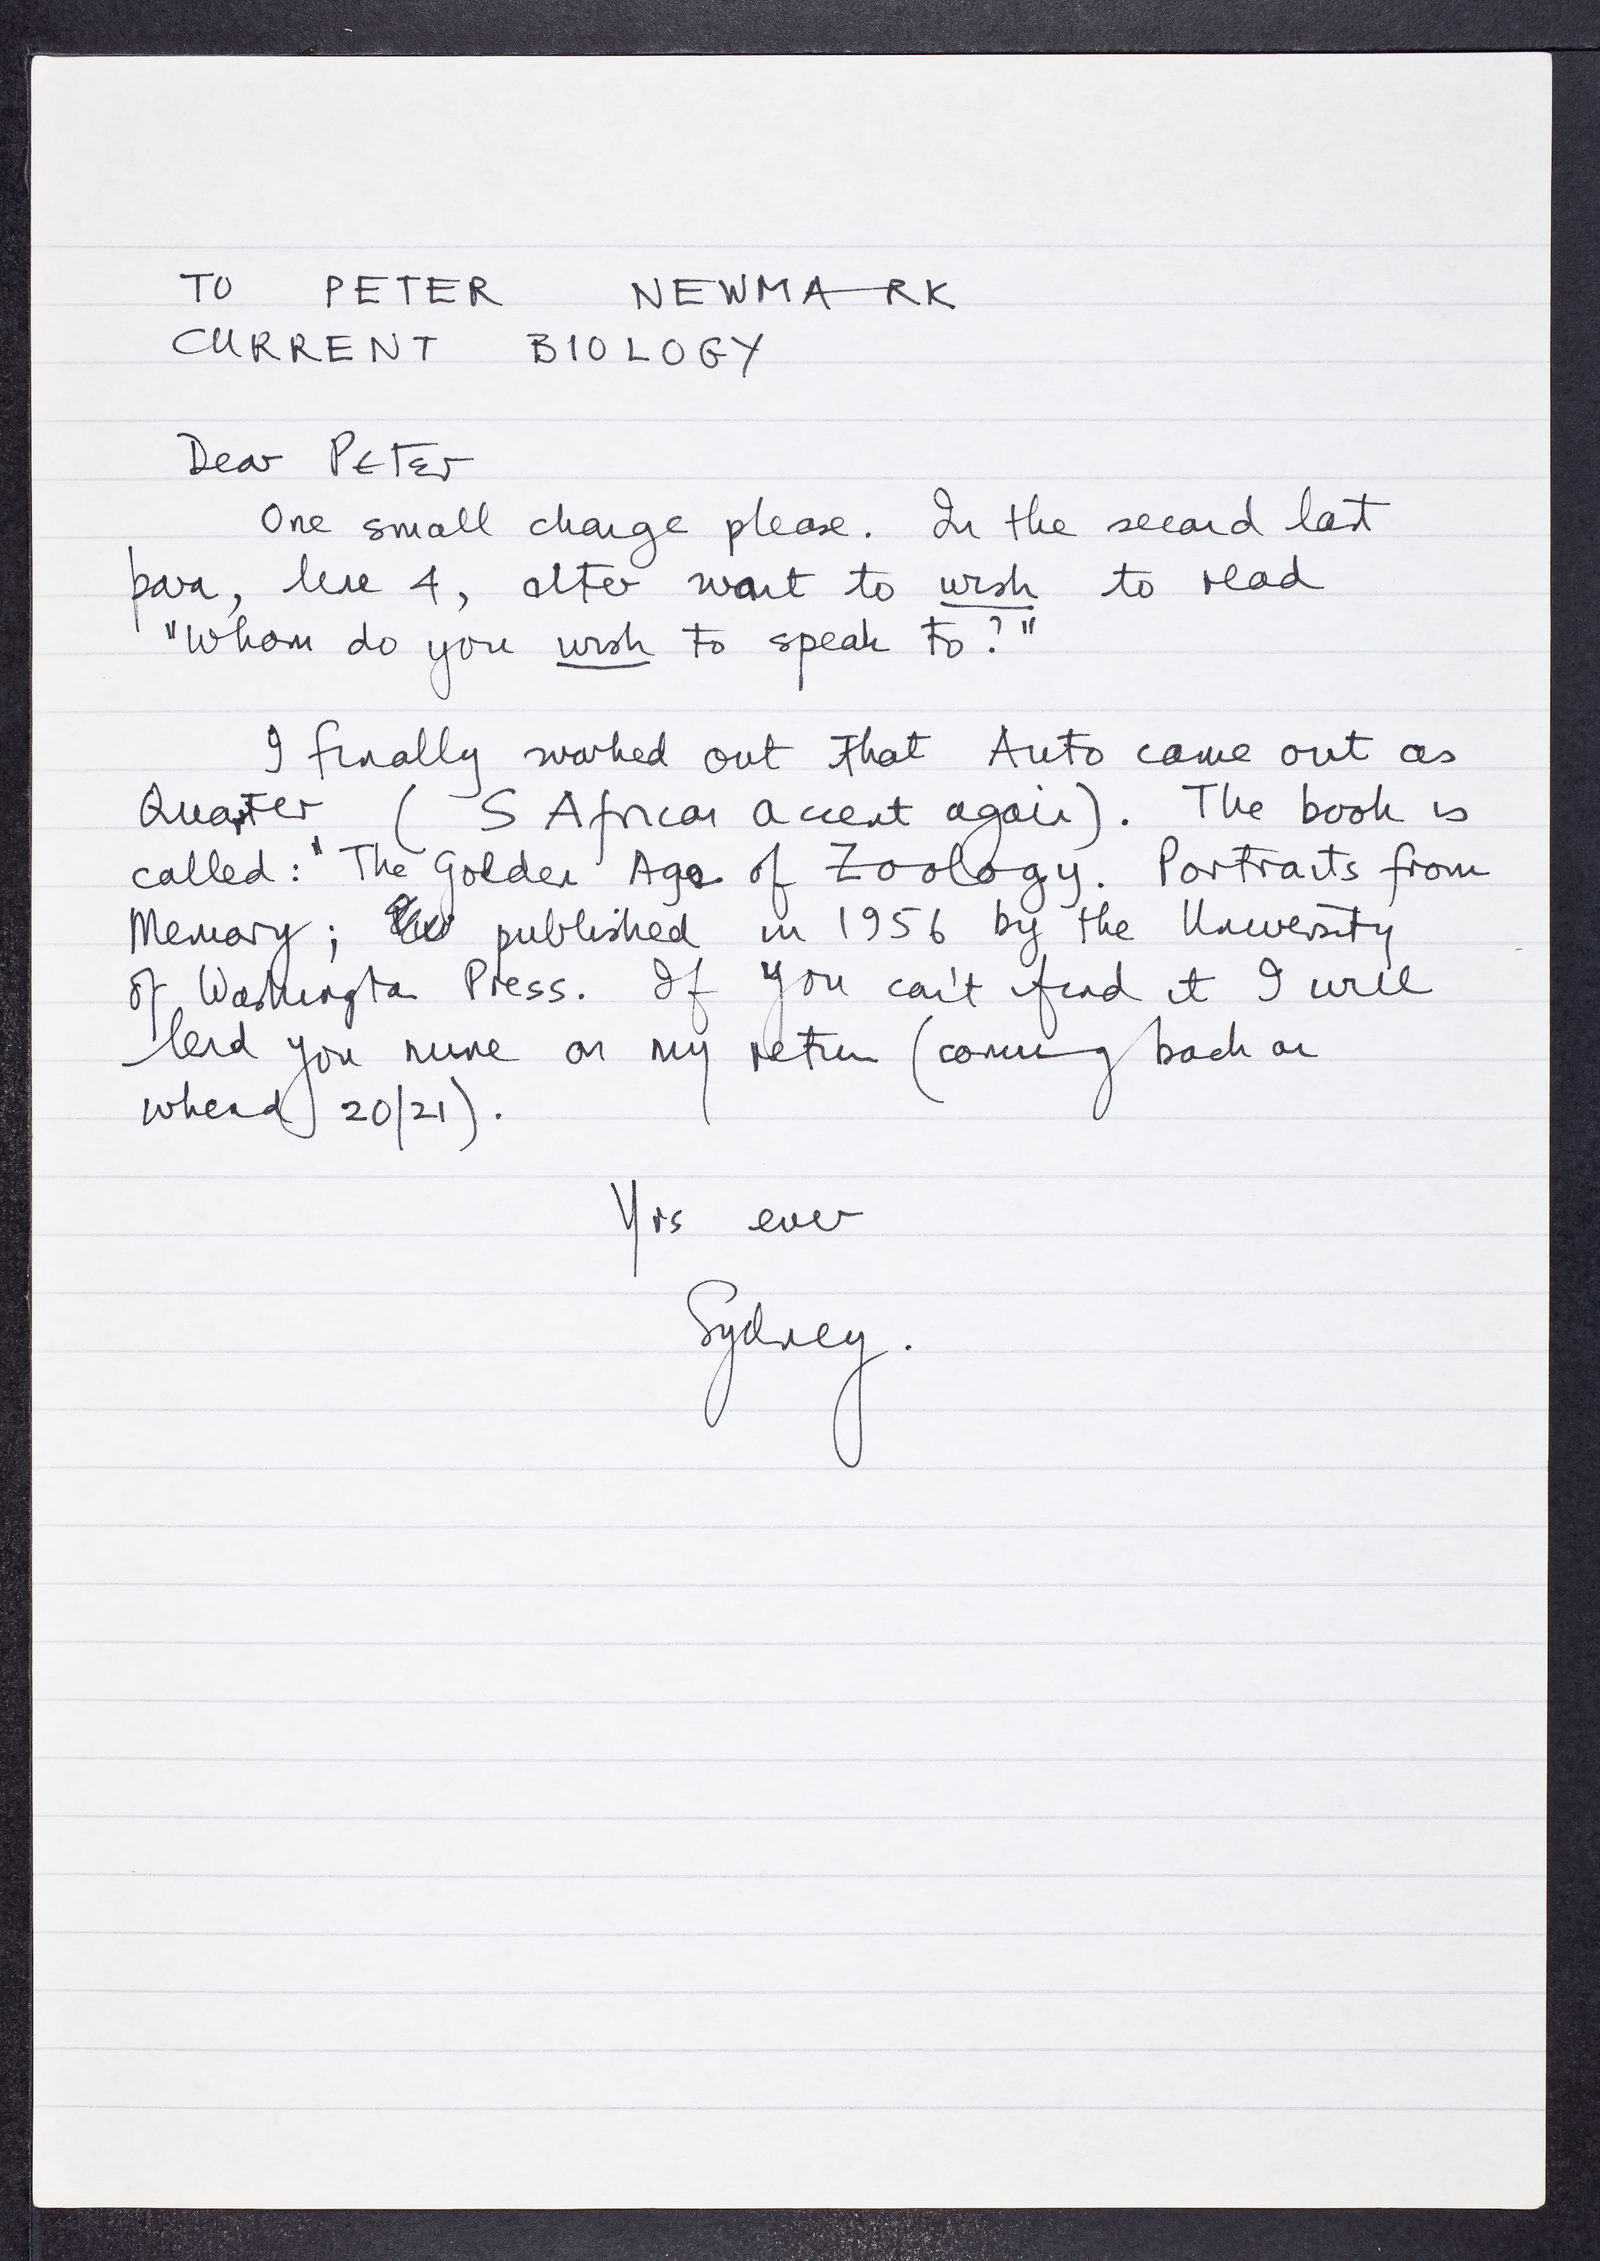 TO PETER NEWMARK
CURRENT BIOLOGY
Dear Peter
One small change please. In the second last
para, line 4, alter want to wish to read
"Whom do you wish to speak to?"
I finally worked out that Auto came out as
Quarter (S African accent again). The book is
called: "The Golden Age of Zoology. Portraits from
Memory; published in 1956 by the University
of Washington Press. If you can't find it I will
lend you mine on my return (coming back on
wkend 20/21).
Yrs ever
Sydney.